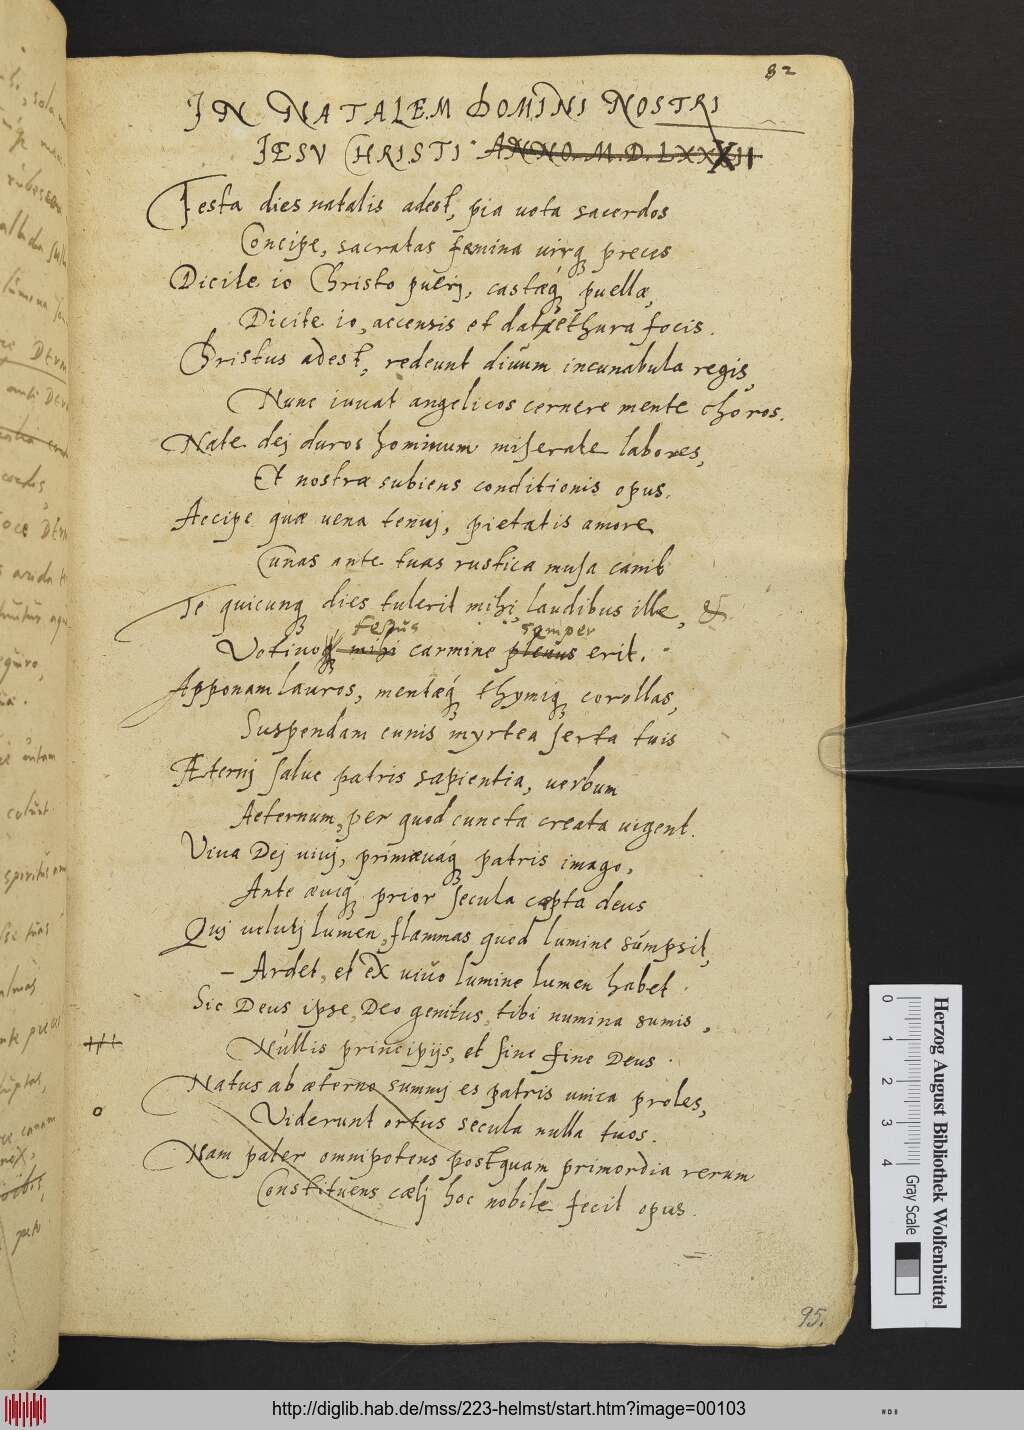 82
IN NATALEM DOMINI NOSTRI
JESV CHRISTI ANNO. M.D.LXXXII
Festa dies natalis adest, pia uota sacerdos
Concipe, sacratas fœmina uirq; preces
Dicite io Christo puerj, castæq́; puellæ,
Dicite io, accensis et date thura focis.
Christus adest, redeunt diuum incunabula regis,
Nunc iuuat angelicos cernere mente choros.
Nate dej duros hominum miserate labores,
Et nostræ subiens conditionis opus.
Accipe quæ uena tenuj, pietatis amore
Cunas ante tuas rustica musa canit
Te quicunq; dies tulerit mihi, laudibus ille, &
festus semper
Votiuoq; mihi carmine plenus erit.
Apponam lauros, mentæq́; thymiq; corollas,
Suspendam cunis myrtea serta tuis
Æternj salue patris sapientia, uerbum
Aeternum, per quod cuncta creata uigent.
Viua Dej uiuj, primæuáq; patris imago,
Ante æuiq́; prior secula cœpta deus
Quj uelutj lumen, flammas quod lumine sumpsit,
– Ardet, et ex uiuo lumine lumen habet.
Sic Deus ipse, Deo genitus, tibi numina sumis,
Nullis principijs, et sine fine Deus.
Natus ab æterno summj es patris unica proles,
Viderunt ortus secula nulla tuos.
Nam pater omnipotens postquam primordia rerum
Constituens cælj hoc nobile fecit opus.
95.
Herzog August Bibliothek Wolfenbüttel
0 1 2 3 4
Gray Scale
http://diglib.hab.de/mss/223-helmst/start.htm?image=00103